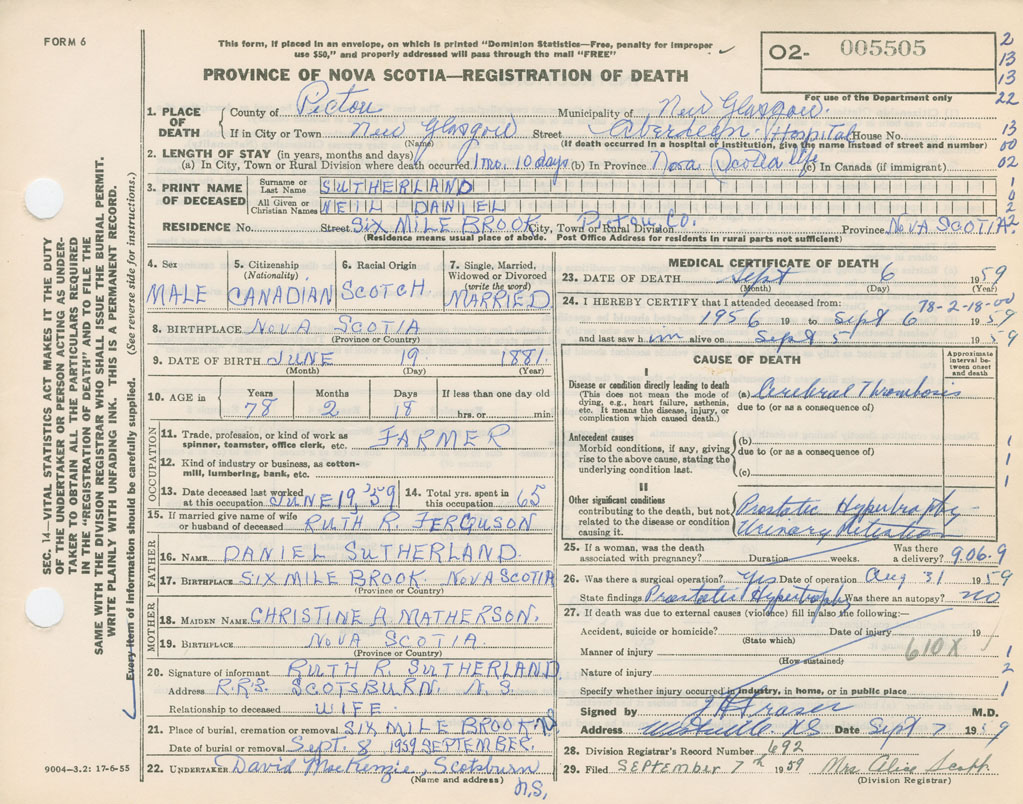 FORM 6
This form, if placed in an envelope, on which is printed "Dominion Statistics—Free, penalty for improper
use $50," and properly addressed will pass through the mail "FREE"
O2- 005505
PROVINCE OF NOVA SCOTIA—REGISTRATION OF DEATH
For use of the Department only
2
13
13
22
13
00
02
1
0
2
2
SEC. 14—VITAL STATISTICS ACT MAKES IT THE DUTY
OF THE UNDERTAKER OR PERSON ACTING AS UNDER-
TAKER TO OBTAIN ALL THE PARTICULARS REQUIRED
IN THE "REGISTRATION OF DEATH" AND TO FILE THE
SAME WITH THE DIVISION REGISTRAR WHO SHALL ISSUE THE BURIAL PERMIT.
WRITE PLAINLY WITH UNFADING INK. THIS IS A PERMANENT RECORD.
Every item of information should be carefully supplied. (See reverse side for instructions.)
1. PLACE OF DEATH County of Pictou Municipality of New Glasgow
If in City or Town New Glasgow Street Aberdeen Hospital House No.
(Name) (If death occurred in a hospital of institution, give the name instead of street and number)
2. LENGTH OF STAY (in years, months and days)
(a) In City, Town or Rural Division where death occurred 1 mo. 10 days (b) In Province Nova Scotia life (c) In Canada (if immigrant)
3. PRINT NAME OF DECEASED Surname or Last Name SUTHERLAND
All Given or Christian Names NEIL DANIEL
RESIDENCE No. Street SIX MILE BROOK City, Town or Rural Division Pictou Co. Province NOVA SCOTIA
(Residence means usual place of abode. Post Office Address for residents in rural parts not sufficient)
4. Sex 5. Citizenship (Nationality) 6. Racial Origin 7. Single, Married, Widowed or Divorced (write the word)
MALE CANADIAN SCOTCH MARRIED
8. BIRTHPLACE NOVA SCOTIA
(Province or Country)
9. DATE OF BIRTH JUNE 19 1881.
(Month) (Day) (Year)
10. AGE in Years Months Days If less than one day old
78 2 18 hrs. or min.
OCCUPATION
11. Trade, profession, or kind of work as
spinner, teamster, office clerk, etc. FARMER
12. Kind of industry or business, as cotton-
mill, lumbering, bank, etc.
13. Date deceased last worked at this occupation JUNE 19, 59 14. Total yrs. spent in this occupation 65
15. If married give name of wife
or husband of deceased RUTH R. FERGUSON
FATHER
16. NAME DANIEL SUTHERLAND.
17. BIRTHPLACE SIX MILE BROOK NOVA SCOTIA
(Province or Country)
MOTHER
18. MAIDEN NAME CHRISTINE A. MATHERSON.
19. BIRTHPLACE NOVA SCOTIA.
(Province or Country)
20. Signature of informant RUTH R. SUTHERLAND
Address R.R.3. SCOTSBURN. N.S.
Relationship to deceased WIFE.
21. Place of burial, cremation or removal SIX MILE BROOK. NS
Date of burial or removal SEPT. 8 1959 SEPTEMBER.
22. UNDERTAKER David MacKenzie, Scotsburn
(Name and address) N.S.
9004—3.2: 17-6-55
MEDICAL CERTIFICATE OF DEATH
23. DATE OF DEATH Sept 6 1959
(Month) (Day) (Year)
24. I HEREBY CERTIFY that I attended deceased from: 78-2-18-00
1956 19 to Sept 6 1959
and last saw him alive on Sept 5 1959
CAUSE OF DEATH
Approximate interval between onset and death
I
Disease or condition directly leading to death
(This does not mean the mode of
dying, e.g., heart failure, asthenia,
etc. It means the disease, injury, or
complication which caused death.)
(a) Cerebral Thrombosis
due to (or as a consequence of)
Antecedent causes
Morbid conditions, if any, giving
rise to the above cause, stating the
underlying condition last.
(b)
due to (or as a consequence of)
(c)
1
1
1
II
Other significant conditions
contributing to the death, but not
related to the disease or condition
causing it.
Prostatic Hypertrophy-
Urinary Retention
25. If a woman, was the death
associated with pregnancy? Duration weeks. Was there a delivery? 906.9
26. Was there a surgical operation? Yes Date of operation Aug 31 1959
State findings Prostatic Hypertrophy Was there an autopsy? no
27. If death was due to external causes (violence) fill in also the following:—
Accident, suicide or homicide? Date of injury 19
(State which)
Manner of injury 610X 1
(How sustained)
Nature of injury 2
Specify whether injury occurred in industry, in home, or in public place 1
Signed by Fraser M.D.
Address Westville N.S. Date Sept 7 1959
28. Division Registrar's Record Number 692
29. Filed SEPTEMBER 7th 1959 Mrs. Alice Scott
(Division Registrar)